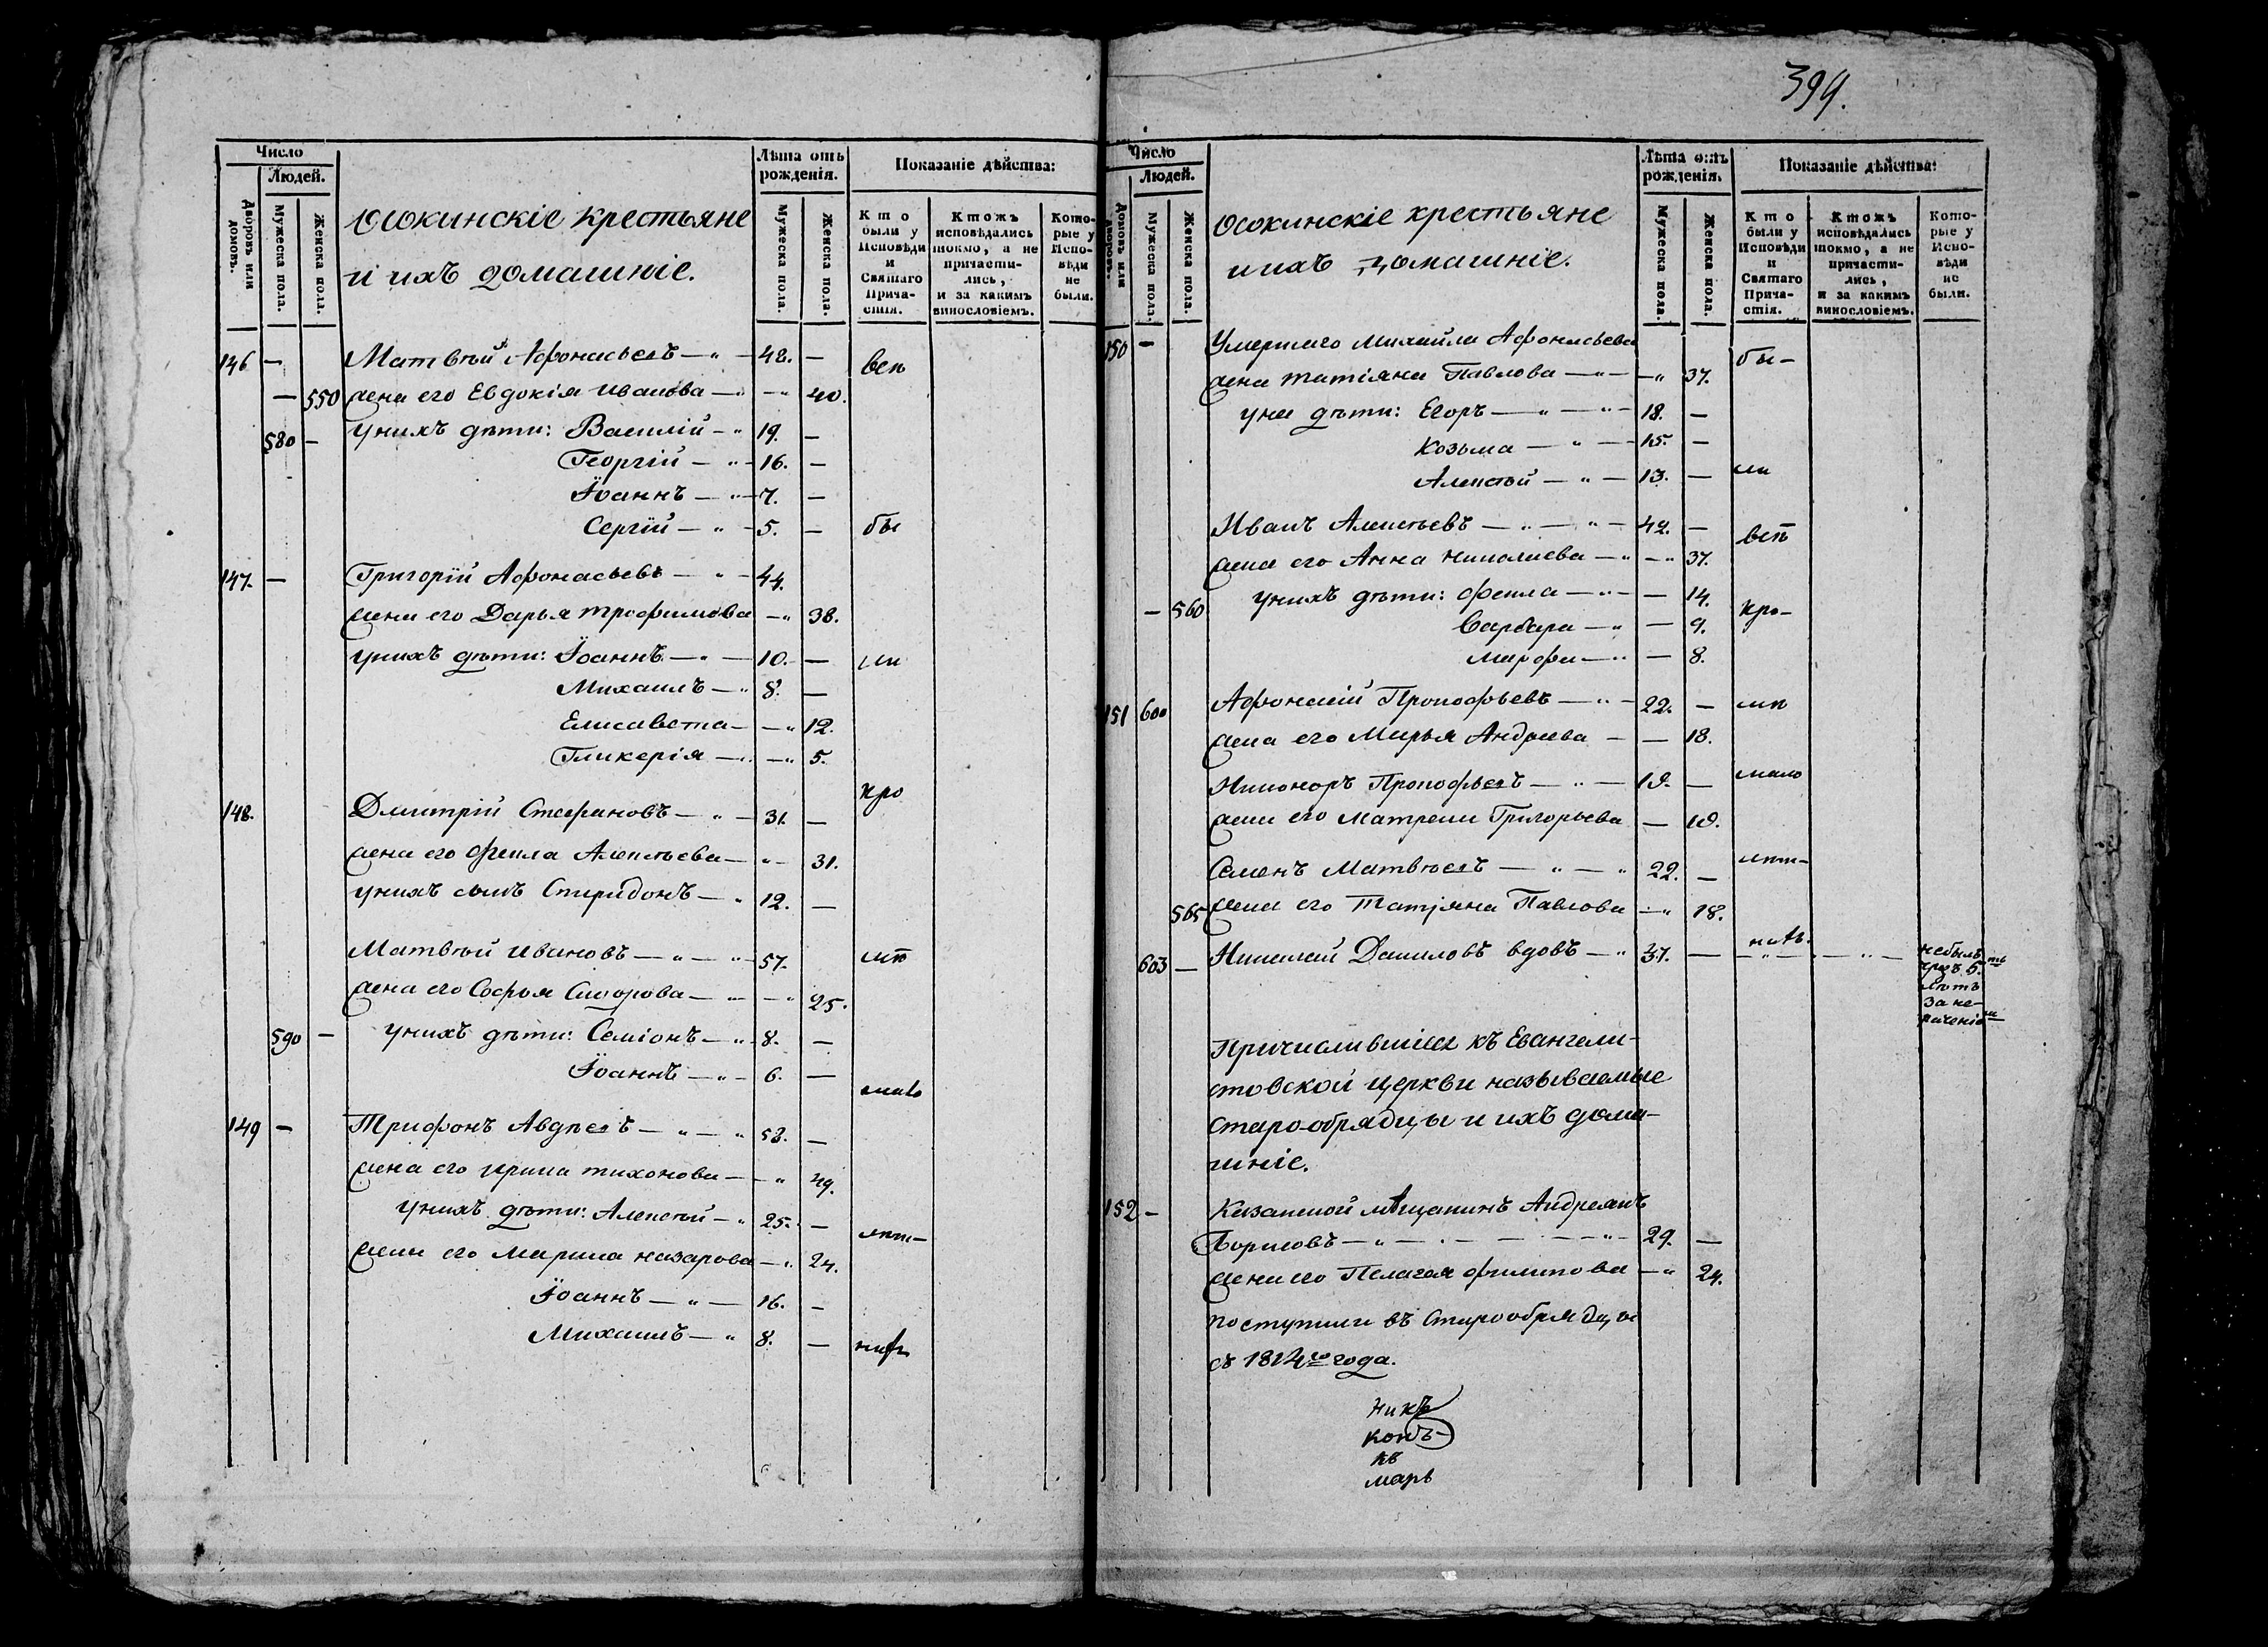 399.
Число
Людей.
Дворовъ или домовъ.
Мужеска пола.
Женска пола.
Осокинскіе крестьяне
и ихъ домашніе.
Лѣта отъ рожденія.
Мужеска пола.
Женска пола.
Показаніе дѣйства:
Кто были у Исповѣди и Святаго Причастія.
Ктожъ исповѣдались токмо, а не причастились, и за какимъ винословіемъ.
Которые у Исповѣди не были.
146 — Матвѣй Афонасьевъ — 48. — всп
— 550 жена его Евдокія Иванова — 40.
580 — у нихъ дѣти: Василій — 19. —
Георгій — 16. —
Іоаннъ — 7. —
Сергій — 5. — бы
147. — Григорій Афонасьевъ — 44.
жена его Дарья Трофимова — 38.
у нихъ дѣти: Іоаннъ — 10. — ли
Михаилъ — 8. —
Елисавета — 12.
Гликерія — 5.
кро
148. Дмитрій Стефановъ — 31. —
жена его Фекла Алексѣева — 31.
у нихъ сынъ Спиридонъ — 12. —
Матвѣй Ивановъ — 57.
жена его Софья Сидорова — 25.
590 — у нихъ дѣти: Семіонъ — 8. —
Іоаннъ — 6. —
мало
149 — Трифонъ Авдѣевъ — 53. —
жена его Ирина Тихонова — 49.
у нихъ дѣти: Алексѣй — 25. —
лѣт-
жена его Марина Назарова — 24.
Іоаннъ — 16. —
Михаилъ — 8. —
Число
Людей.
Домовъ или дворовъ.
Мужеска пола.
Женска пола.
Осокинскіе крестьяне
и ихъ домашніе.
Лѣта отъ рожденія.
Мужеска пола.
Женска пола.
Показаніе дѣйства:
Кто были у Исповѣди и Святаго Причастія.
Ктожъ исповѣдались токмо, а не причастились, и за какимъ винословіемъ.
Которые у Исповѣди не были.
150 — Умершаго Михайла Афонасьева
жена Татіяна Павлова — 37. бы-
у ней дѣти: Егоръ — 18. —
Козьма — 15. —
Алексѣй — 13. — ли
Иванъ Алексѣевъ — 42. —
жена его Анна Николаева — 37.
— 560 у нихъ дѣти: Фекла — 14.
кро-
Варвара — 9.
Марфа — 8.
151 600 Афонасій Прокофьевъ — 22. —
жена его Марья Андреева — 18.
Никоноръ Прокофьевъ — 19. — мало
жена его Матрена Григорьева — 19.
Семенъ Матвѣевъ — 22. — лѣт-
565 жена его Татіяна Павлова — 18.
603 — Николай Даниловъ вдовъ — 37. —
не былъ
чрезъ 5.ть
лѣтъ
за не-
раченіемъ
Причислившіися къ Евангели-
стовской церкви называемые
старообрядцы и их дома-
шніе.
152 — Казанской мѣщанинъ Андреянъ
Борисовъ — 29. —
жена его Пелагея Филипова — 24.
поступили въ старообрядцы
съ 1814го года.
Никъ
конъ
марь